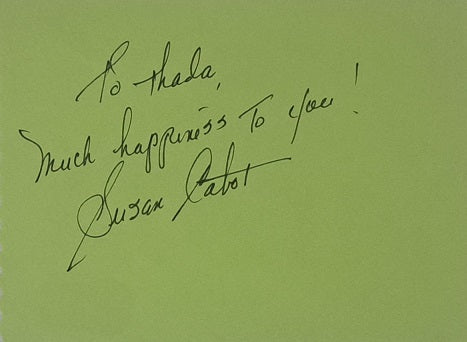 To Thada,
Much happiness To you!
Susan Cabot